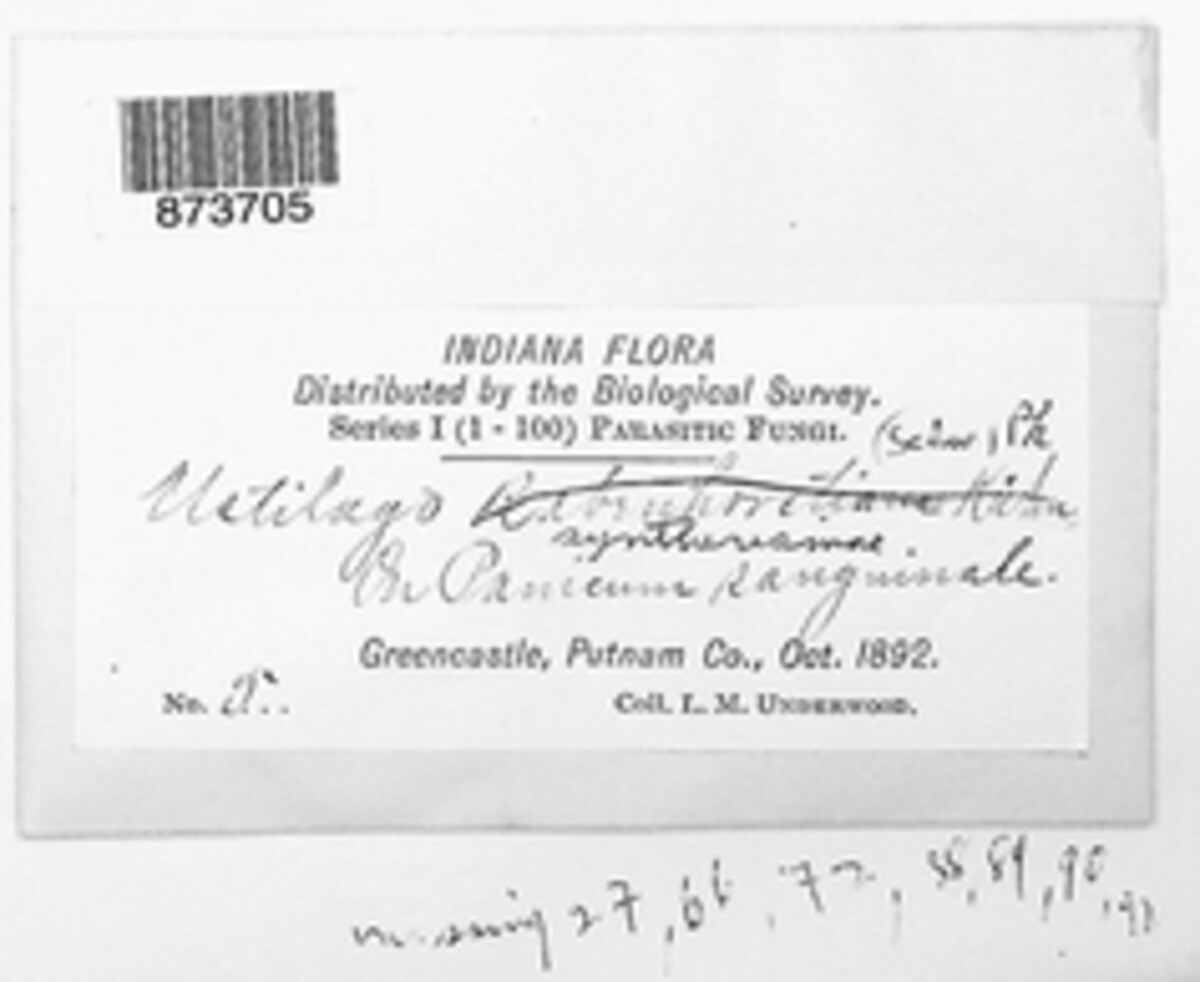 873705
INDIANA FLORA
Distributed by the Biological Survey.
Series I (1 - 100) PARASITIC FUNGI.
(Schw.) Pk
Ustilago Rabenhorstiana Kühn
syntherismae
On Panicum sanguinale.
Greencastle, Putnam Co., Oct. 1892.
No.
Coll. L. M. UNDERWOOD.
missing 27, 66, 77, 88, 89, 90,